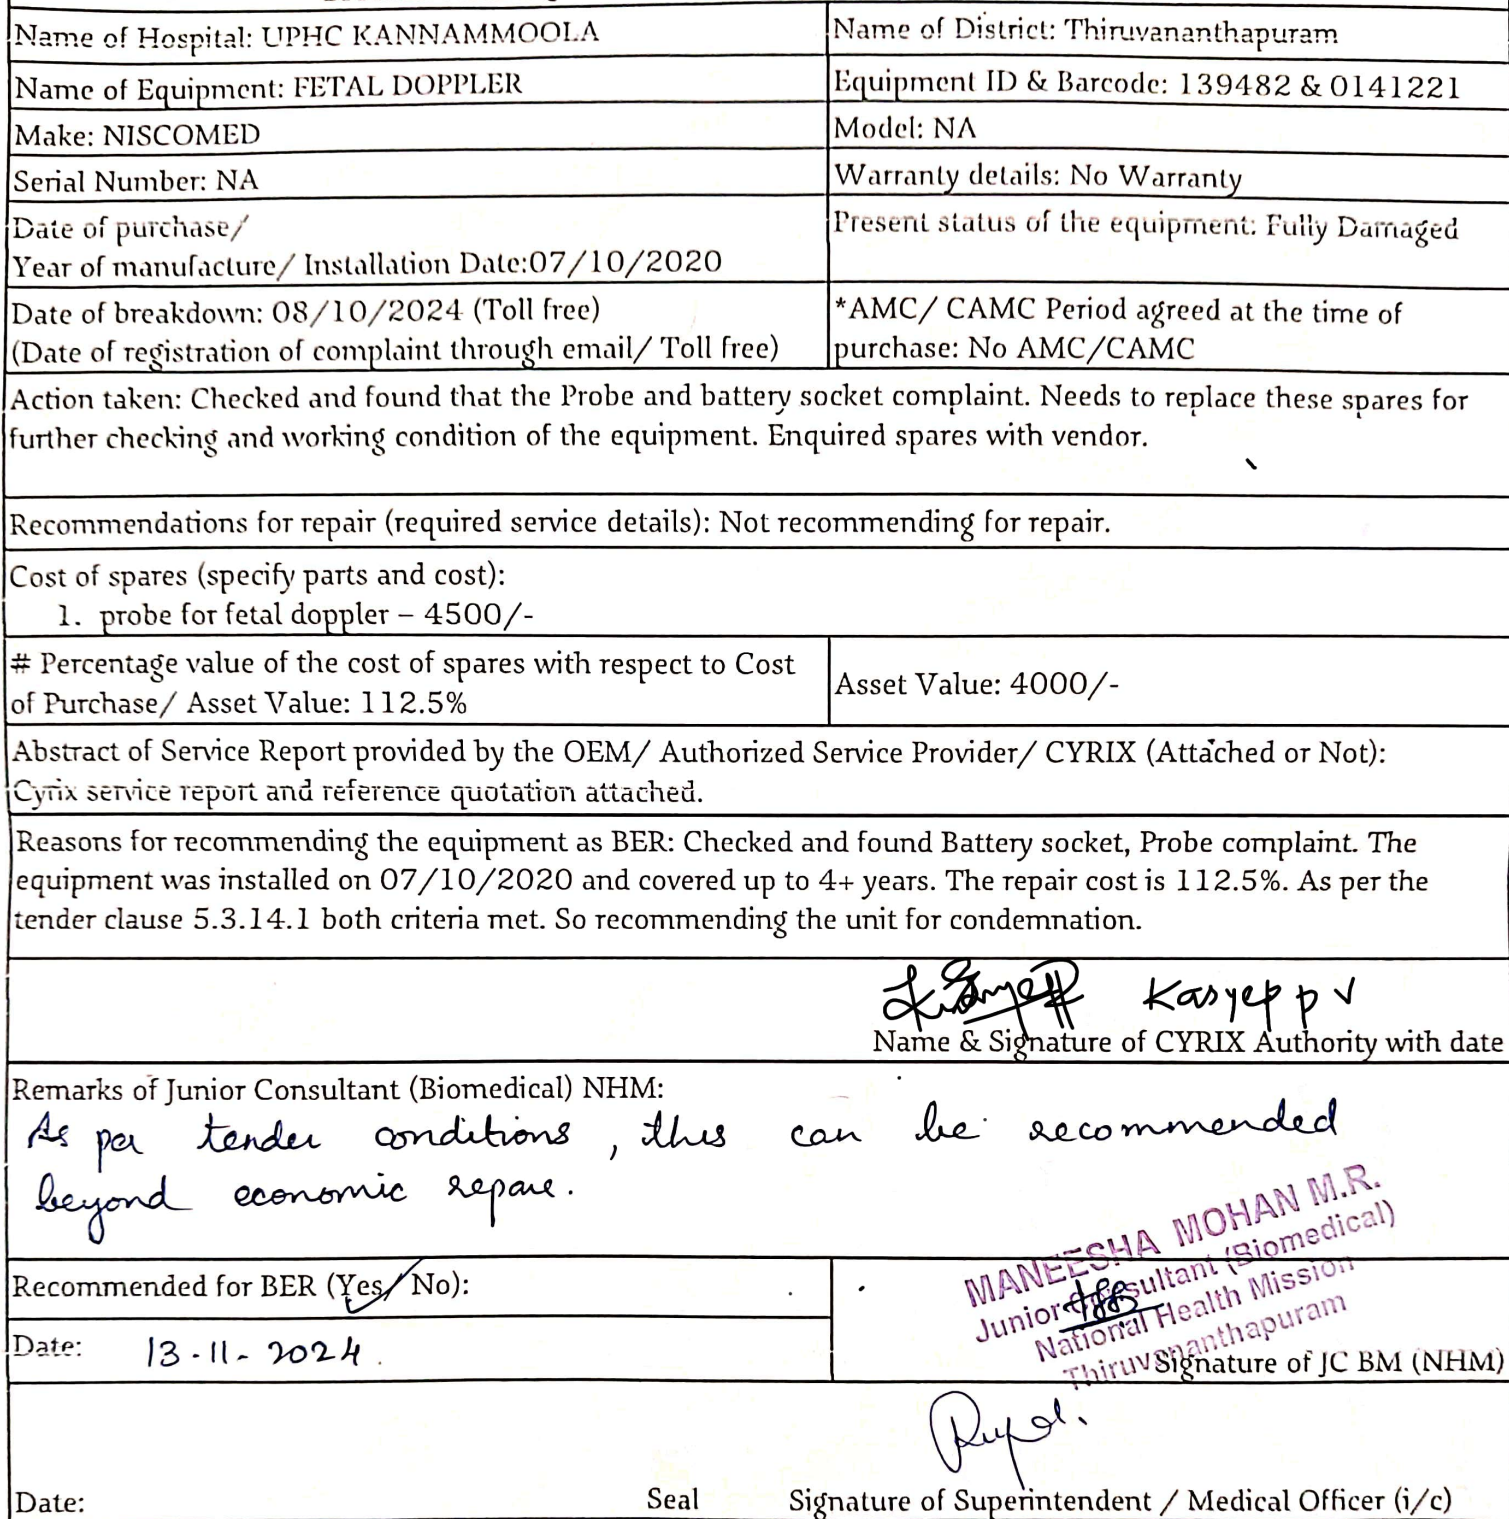 Name of Hospital: UPHC KANNAMMOOLA
Name of District: Thiruvananthapuram
Name of Equipment: FETAL DOPPLER
Equipment ID & Barcode: 139482 & 0141221
Make: NISCOMED
Model: NA
Serial Number: NA
Warranty details: No Warranty
Date of purchase/
Year of manufacture/ Installation Date:07/10/2020
Present status of the equipment: Fully Damaged
Date of breakdown: 08/10/2024 (Toll free)
(Date of registration of complaint through email/ Toll free)
*AMC/ CAMC Period agreed at the time of
purchase: No AMC/CAMC
Action taken: Checked and found that the Probe and battery socket complaint. Needs to replace these spares for
further checking and working condition of the equipment. Enquired spares with vendor.
Recommendations for repair (required service details): Not recommending for repair.
Cost of spares (specify parts and cost):
1. probe for fetal doppler – 4500/-
# Percentage value of the cost of spares with respect to Cost
of Purchase/ Asset Value: 112.5%
Asset Value: 4000/-
Abstract of Service Report provided by the OEM/ Authorized Service Provider/ CYRIX (Attached or Not):
Cyrix service report and reference quotation attached.
Reasons for recommending the equipment as BER: Checked and found Battery socket, Probe complaint. The
equipment was installed on 07/10/2020 and covered up to 4+ years. The repair cost is 112.5%. As per the
tender clause 5.3.14.1 both criteria met. So recommending the unit for condemnation.
Kasyep p v
Name & Signature of CYRIX Authority with date
Remarks of Junior Consultant (Biomedical) NHM:
As per tender conditions, this can be recommended
beyond economic repare.
Recommended for BER (Yes/ No):
Date: 13-11-2024
MANEESHA MOHAN M.R.
Junior Consultant (Biomedical)
National Health Mission
Thiruvananthapuram
Signature of JC BM (NHM)
Date:
Seal
Signature of Superintendent / Medical Officer (i/c)